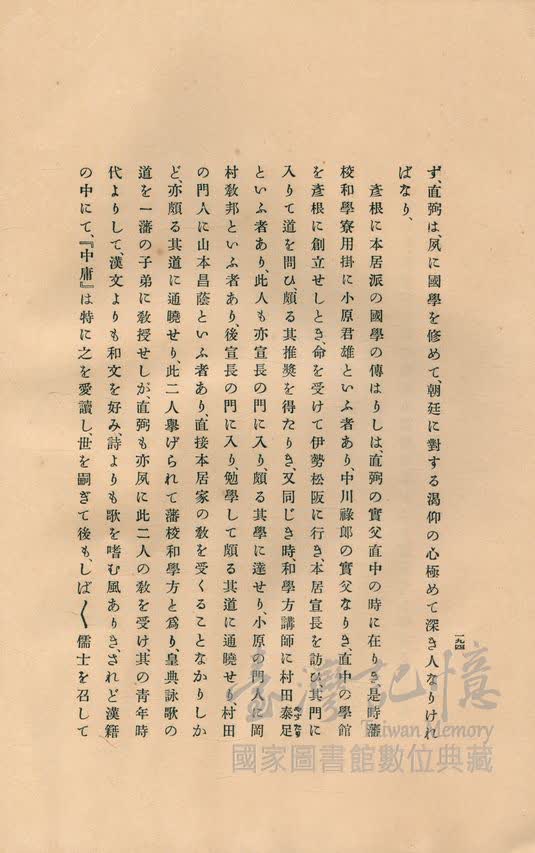 一九四
ず、直弼は、夙に國學を修めて、朝廷に對する渇仰の心極めて深き人なりけれ
ばなり、
彥根に本居派の國學の傳はりしは、直弼の實父直中の時に在りき、是時藩
校和學寮用掛に小原君雄といふ者あり、中川祿郎の實父なりき、直中の學館
を彥根に創立せしとき、命を受けて伊勢松阪に行き、本居宣長を訪ひ其門に
入りて道を問ひ、頗る其推奬を得たりき、又同じき時和學方講師に村田泰足
やすたり
といふ者あり、此人も亦宣長の門に入り、頗る其學に達せり、小原の門人に岡
村敎邦といふ者あり、後宣長の門に入り、勉學して頗る其道に通曉せり、村田
の門人に山本昌蔭といふ者あり、直接本居家の敎を受くることなかりしか
ど、亦頗る其道に通曉せり、此二人擧げられて藩校和學方と爲り、皇典詠歌の
道を一藩の子弟に敎授せしが、直弼も亦夙に此二人の敎を受け、其の靑年時
代よりして、漢文よりも和文を好み、詩よりも歌を嗜む風ありき、されど漢籍
の中にて、『中庸』は特に之を愛讀し、世を嗣ぎて後も、しば〱儒士を召して
臺灣記憶
Taiwan Memory
國家圖書館數位典藏